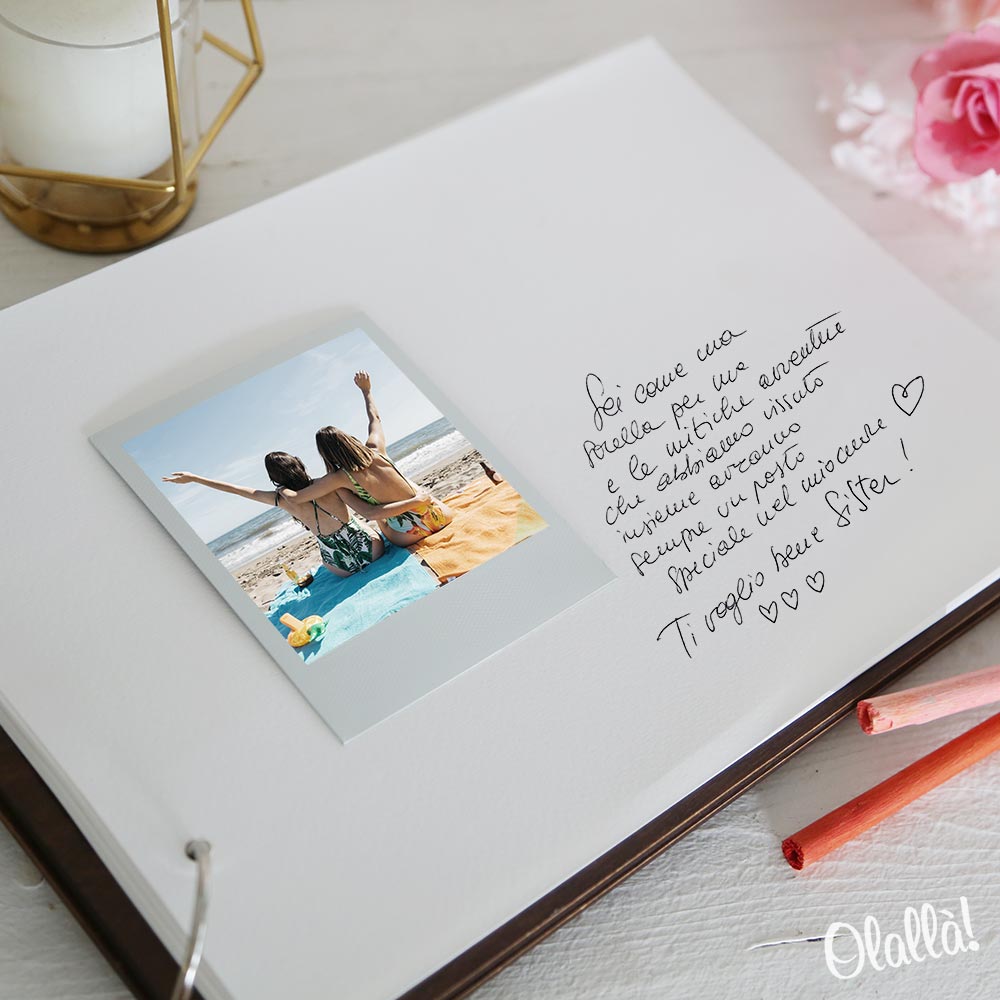 Sei come una
sorella per me
e le mitiche avventure
che abbiamo vissuto
insieme avranno
sempre un posto
speciale nel mio cuore ♡
Ti voglio bene Sister!
♡♡♡
Olallà!